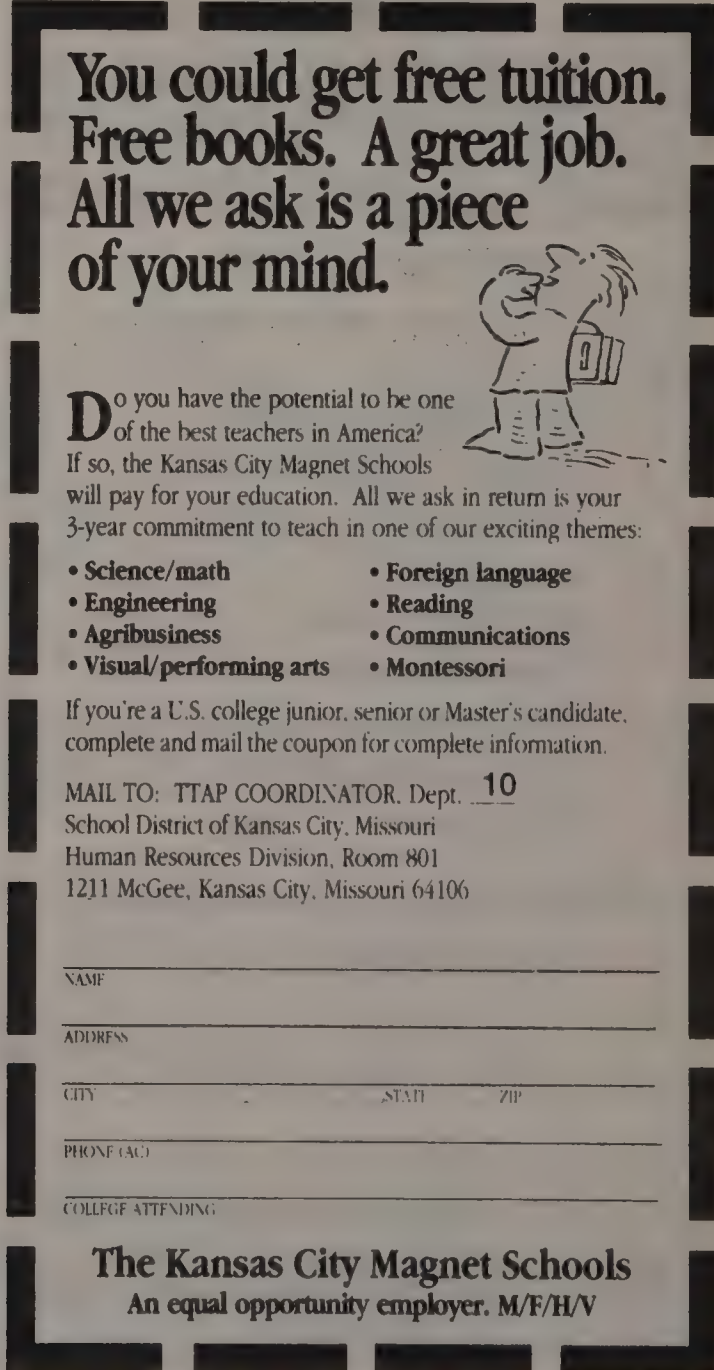 You could get free tuition.
Free books. A great job.
All we ask is a piece
of your mind.
Do you have the potential to be one
of the best teachers in America?
If so, the Kansas City Magnet Schools
will pay for your education. All we ask in return is your
3-year commitment to teach in one of our exciting themes:
• Science/math
• Engineering
• Agribusiness
• Visual/performing arts
• Foreign language
• Reading
• Communications
• Montessori
If you're a U.S. college junior, senior or Master's candidate,
complete and mail the coupon for complete information.
MAIL TO: TTAP COORDINATOR, Dept. 10
School District of Kansas City, Missouri
Human Resources Division, Room 801
1211 McGee, Kansas City, Missouri 64106
NAME
ADDRESS
CITY STATE ZIP
PHONE (AC)
COLLEGE ATTENDING
The Kansas City Magnet Schools
An equal opportunity employer. M/F/H/V